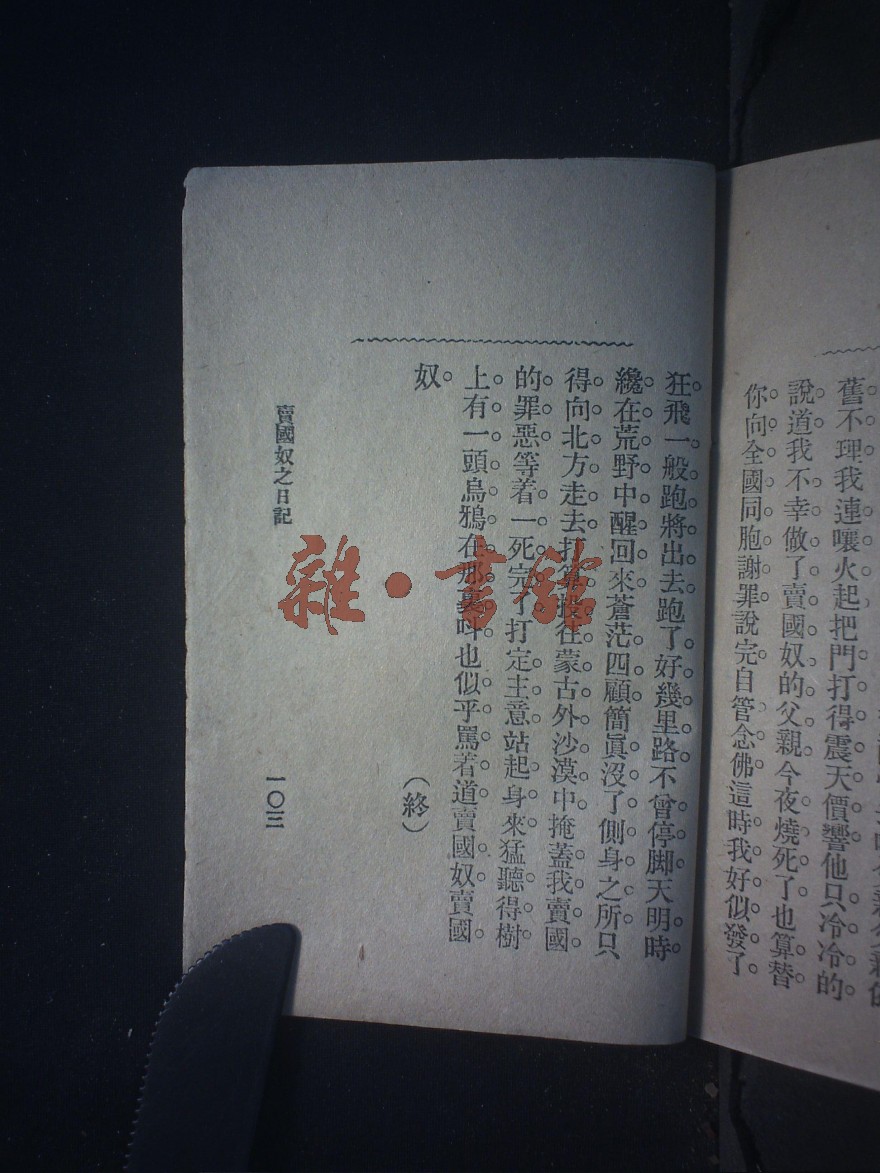 舊不理我連嚷火起把門打得震天價響他只冷冷的
說道我不幸做了賣國奴的父親今夜燒死了也算替
你向全國同胞謝罪說完自管念佛這時我好似發了
狂飛一般跑將出去跑了好幾里路不曾停脚天明時
纔在荒野中醒回來蒼茫四顧簡眞沒了側身之所只
得向北方走去打算投往蒙古外沙漠中掩蓋我賣國
的罪惡等着一死完了打定主意站起身來猛聽得樹
上有一頭烏鴉在那裏呌也似乎罵着道賣國奴賣國
奴
（終）
賣國奴之日記
一〇三
雜·書館